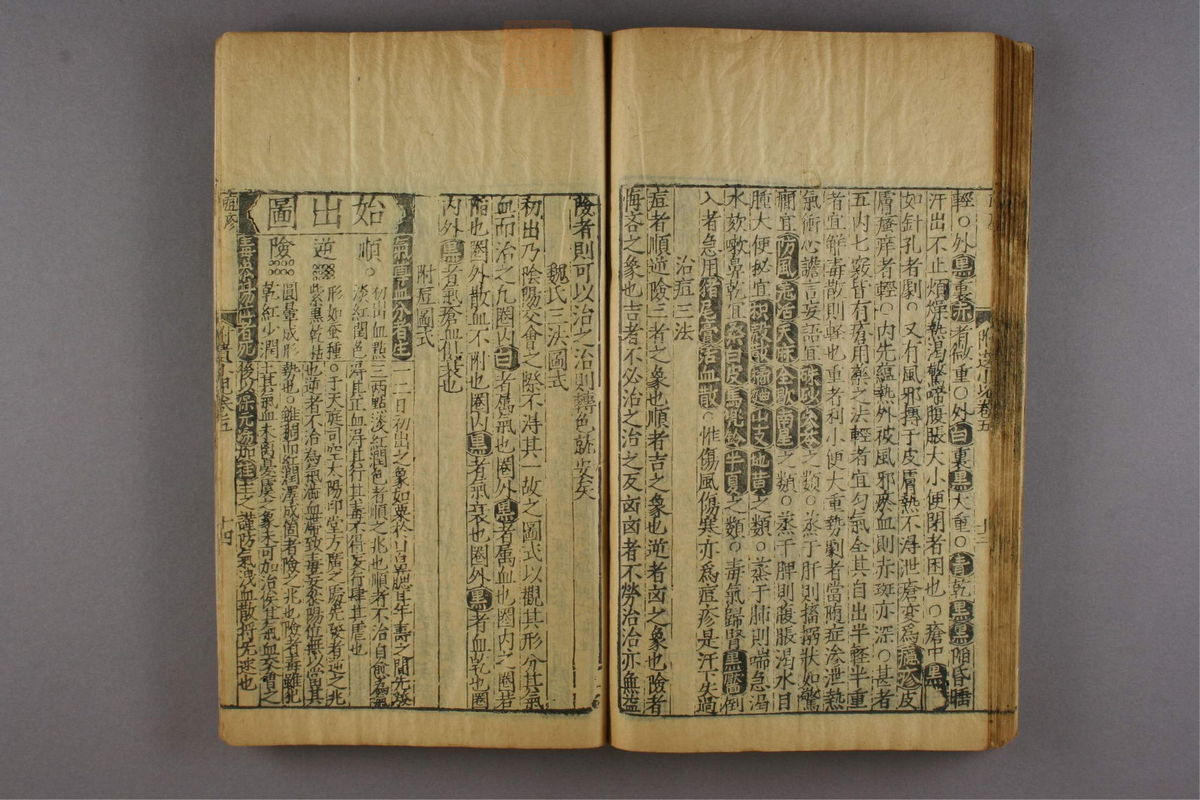 輕○外黑裏赤者微重○外白裏黑大重○青乾黑黑陷昏睡
汗出不止煩燥熱渴驚啼腹脹大小便閉者困也○瘡中黑
如針孔者劇○又有風邪搏于皮膚熱不得泄瘡変為癮疹皮
膚瘙痒者輕○内先蘊熱外被風邪瘀血則赤斑亦深○甚者
五内七竅皆有瘡用藥之法輕者宜勻氣全其自出半軽半重
者宜觧毒散則觧也重者利小便大重熱劇者當随症滲泄熱
氣衝心譫言妄語宜硃砂參苓之類○蒸于肝則搐搦状如驚
癇宜防風羌活天麻全歇南星之類○蒸于脾則腹脹渴水目
腫大便秘宜枳殻山支地黄之類○蒸于肺則喘急渴
水欬嗽鼻乾宜桑白皮馬兠鈴半夏之類○毒氣歸腎黑黶倒
入者急用猪尾膏活血散○惟傷風傷寒亦為痘疹是汗下失過
治痘三法
痘者順逆險三者之象也順者吉之象也逆者凶之象也險者
悔吝之象也吉者不必治之治之反凶凶者不勞治治亦無益
險者則可以治之治則轉危就安矣
魏氏三法圖式
初出乃陰陽交會之際不得其一故之圖式以觀其形分其氣
血而治之凢圏内白者属氣也圏外黑者属血也圏内之圏若
陷也圏外散血不附也圏内黑者氣衰也圏外黑者血乾也圏
内外黑者氣瘡血俱衰也
附痘圖式
始出圖
順○
逆
險
氣尊血分者生
一二日初出之象如粟於口鼻腮耳年壽之間先發
初出血點三兩點淡紅潤色者順之兆也順者不治自愈為氣
淡紅潤色得其正血得其行其毒不得妄行肆其虐也
形如蚕種○于天庭司空太陽印堂方廣之處先發者逆之兆
紫黑乾枯也逆者不治為氣滯血凝致毒妄參陽位無以當其
圓暈成形勢也○雖稠而紅潤澤成個者險之兆也險者毒雖犯
乾紅少潤上其氣血未離憂虞之象未可加治俟其氣血交會之
後以保元湯加桂主之謹防氣泄血散將先速也
十四